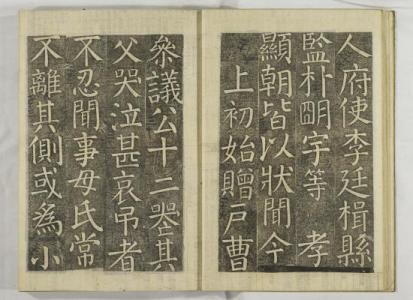 人府使李廷楫縣
監朴朙宇等 孝
顯朝皆以狀聞今
上初始贈戶曹
叅議公十二喪其
父哭泣甚哀吊者
不忍聞事母氏常
不離其側或為小